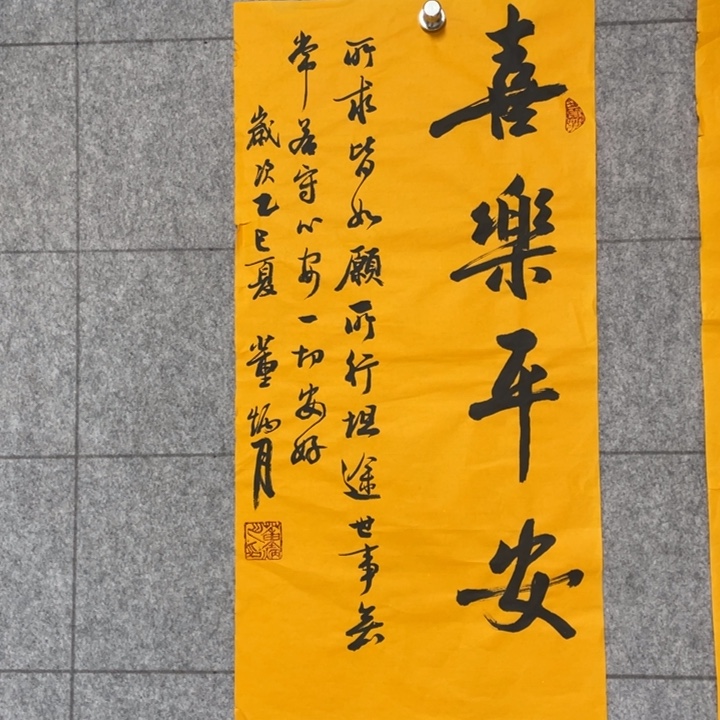 喜樂平安
所求皆如願所行坦途世事無
常若守心安一切安好
歲次乙巳夏 董炳月